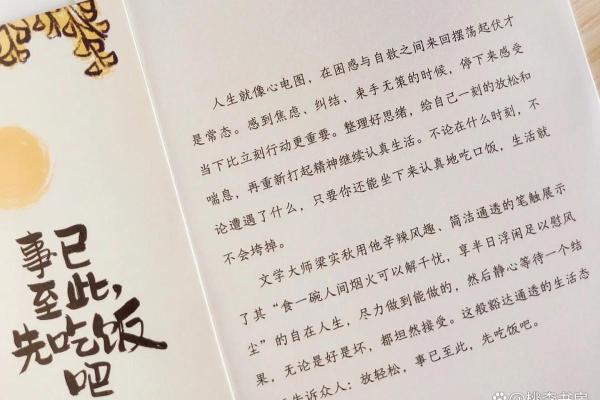 事已
至此，
先吃饭
吧
人生就像心电图，在困惑与自救之间来回摆荡起伏才
是常态。感到焦虑、纠结、束手无策的时候，停下来感受
当下比立刻行动更重要。整理好思绪，给自己一刻的放松和
喘息，再重新打起精神继续认真生活。不论在什么时刻，不
论遭遇了什么，只要你还能坐下来认真地吃口饭，生活就
不会垮掉。
文学大师梁实秋用他辛辣风趣、简洁通透的笔触展示
了其“食一碗人间烟火可以解千忧，享半日浮闲足以慰风
尘”的自在人生，尽力做到能做的，然后静心等待一个结
果，无论是好是坏，都坦然接受。这般豁达通透的生活态
告诉众人：放轻松，事已至此，先吃饭吧。